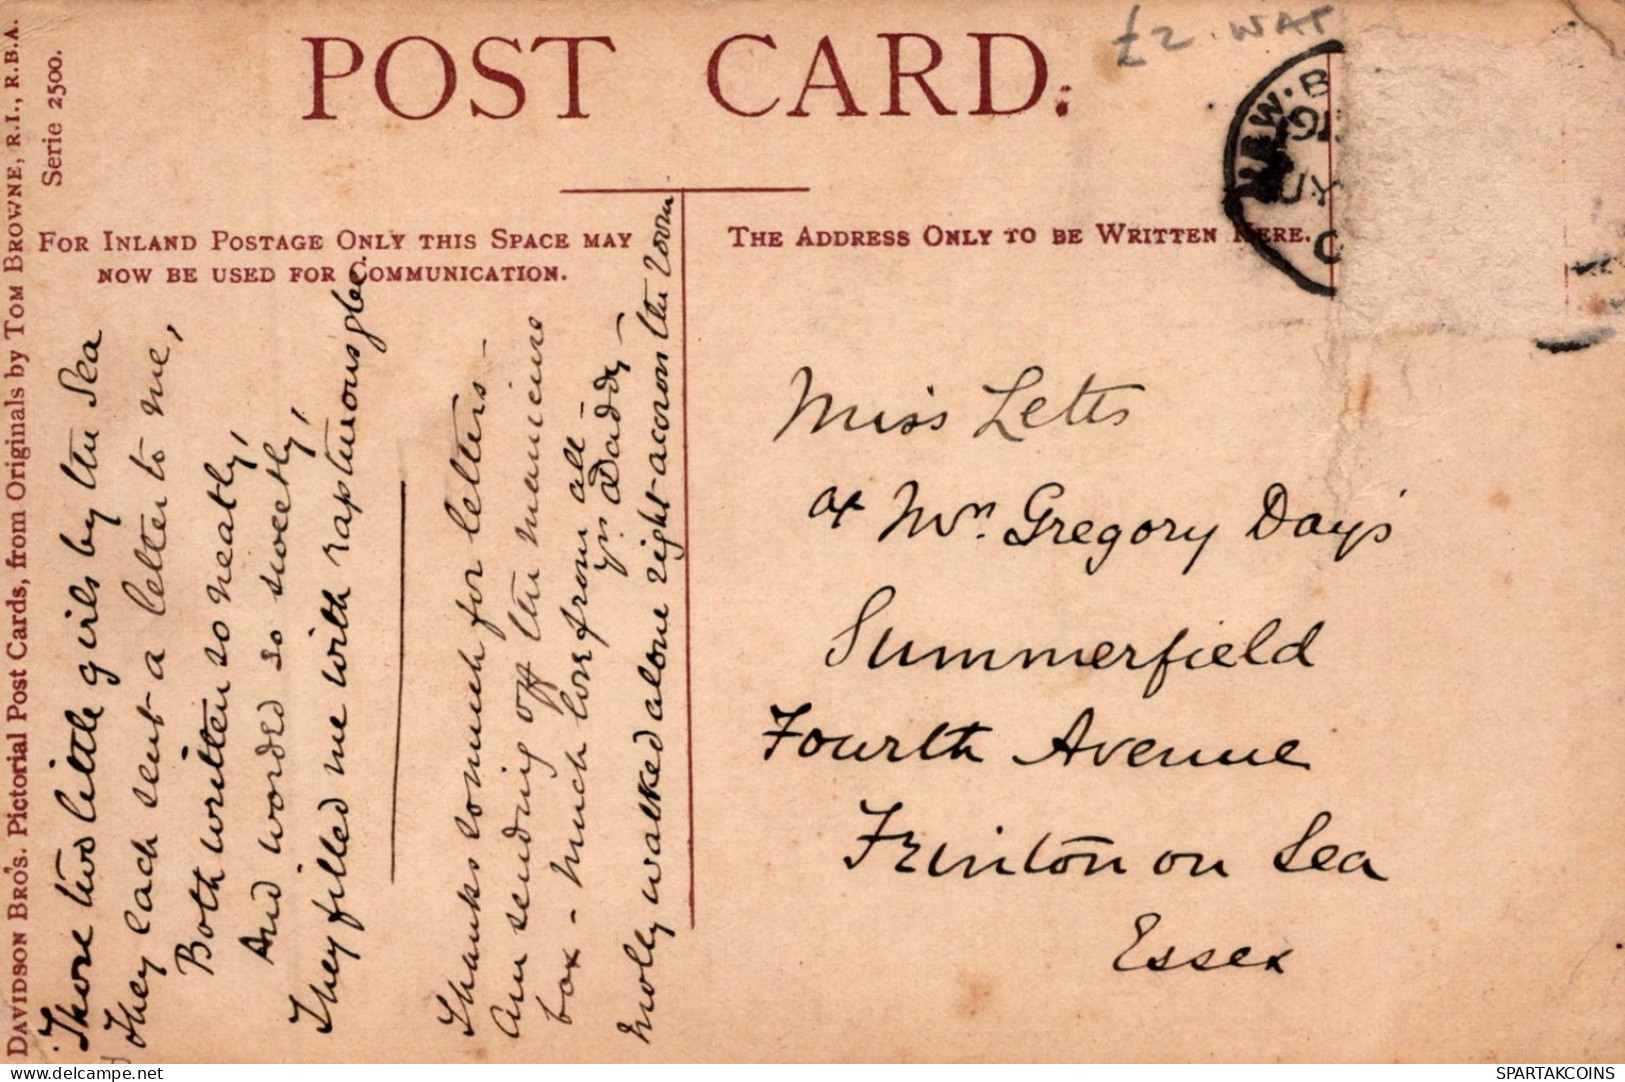 POST CARD.
£2 · WAT
DAVIDSON BRO'S. Pictorial Post Cards, from Originals by TOM BROWNE, R.I., R.B.A.
Serie 2500.
FOR INLAND POSTAGE ONLY THIS SPACE MAY
NOW BE USED FOR COMMUNICATION.
THE ADDRESS ONLY TO BE WRITTEN HERE.
Those two little girls by the Sea
They each sent a letter to me,
Both written so neatly,
And worded so sweetly,
They filled me with rapturous glee.
Thanks so much for letters –
Am sending off the
box – Much love from all –
Yr. Daddy –
Molly walked alone right across the room
Miss Letts
at Mrs. Gregory Day's
Summerfield
Fourth Avenue
Frinton on Sea
Essex
SPARTAKCOINS
delcampe.net